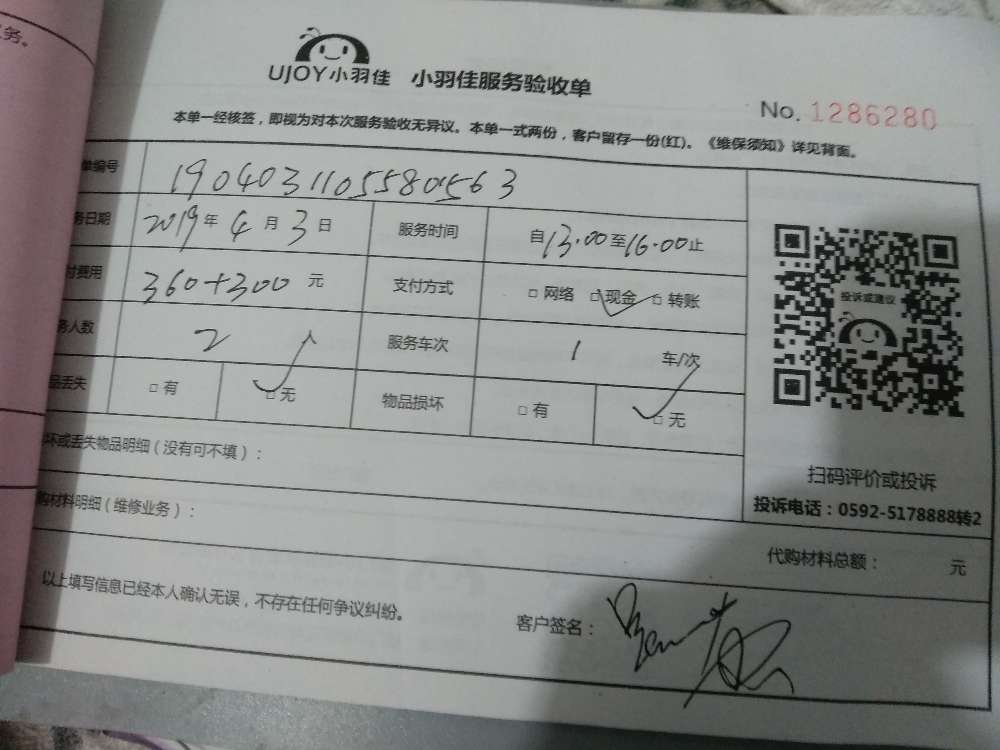 务。
UJOY小羽佳 小羽佳服务验收单
No. 1286280
本单一经核签，即视为对本次服务验收无异议。本单一式两份，客户留存一份(红)。《维保须知》详见背面。
单编号 1904031105580563
务日期 2019年4月3日 服务时间 自13.00至16.00止
付费用 360+300 元 支付方式 □ 网络 □ 现金 □ 转账
务人数 2 服务车次 1 车/次
品丢失 □ 有 □ 无 物品损坏 □ 有 □ 无
投诉或建议
坏或丢失物品明细（没有可不填）：
扫码评价或投诉
投诉电话：0592-5178888转2
购材料明细（维修业务）：
代购材料总额： 元
以上填写信息已经本人确认无误，不存在任何争议纠纷。
客户签名：